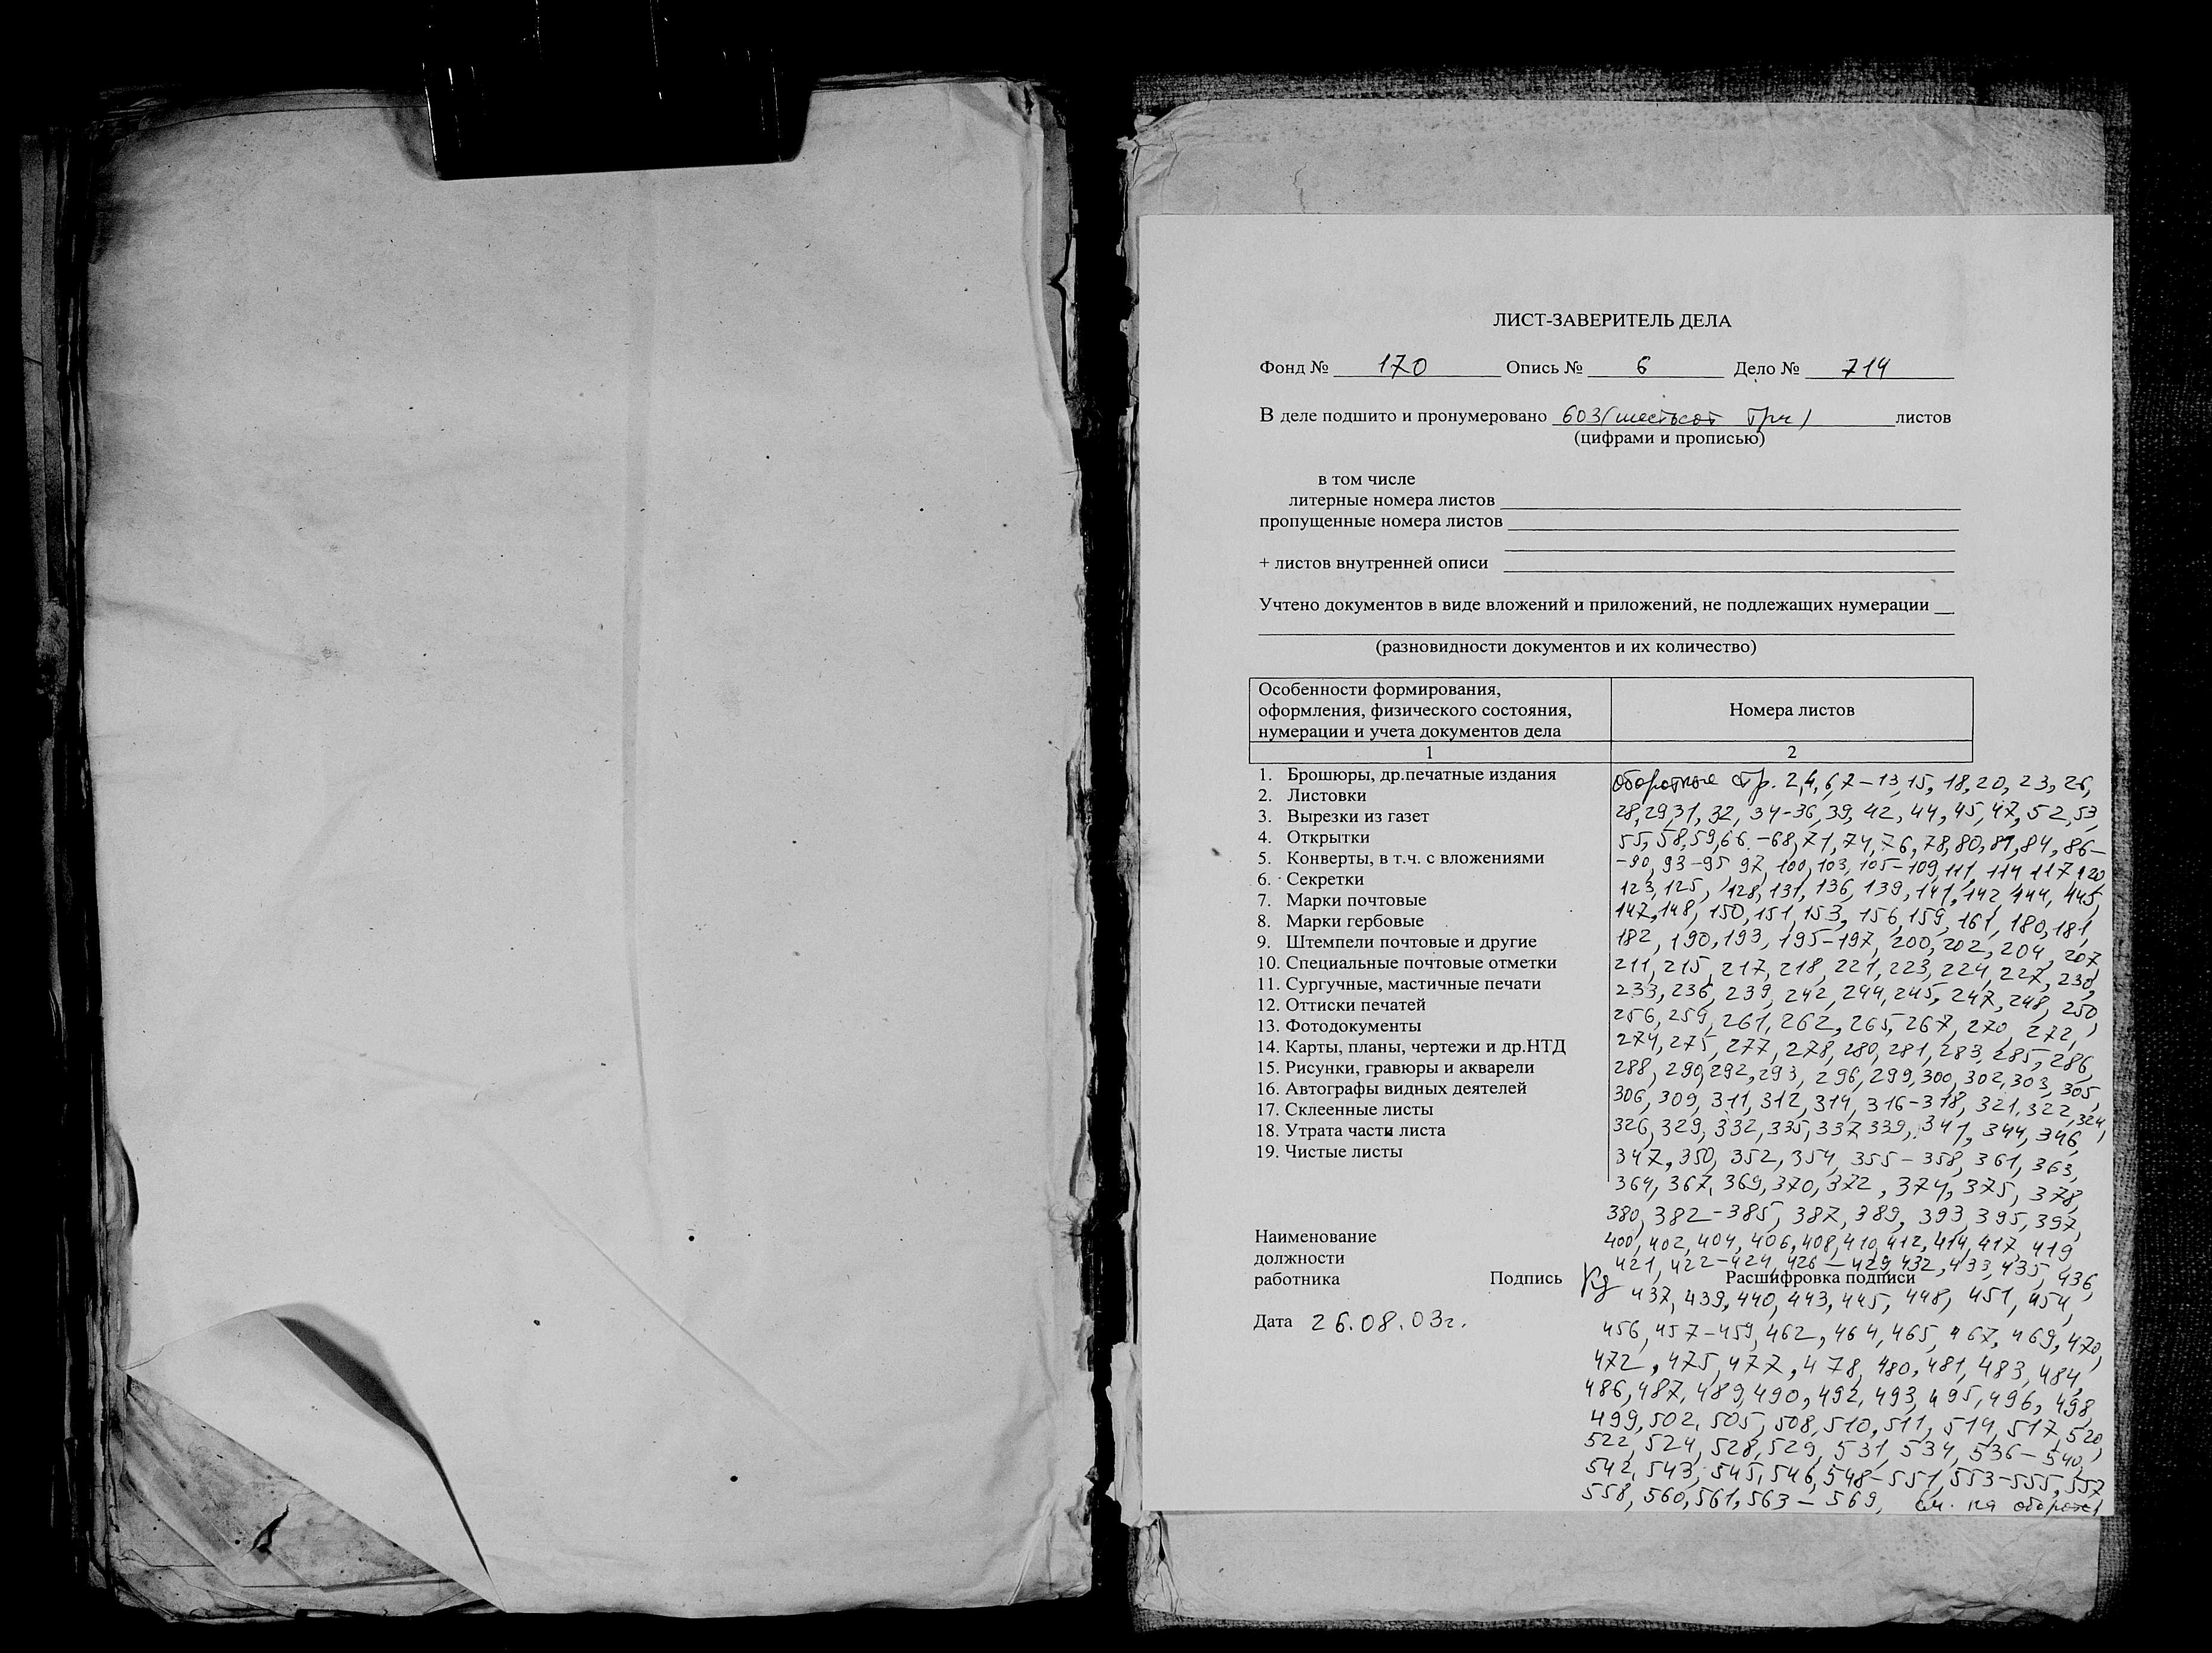 ЛИСТ-ЗАВЕРИТЕЛЬ ДЕЛА
Фонд № 170 Опись № 6 Дело № 714
В деле подшито и пронумеровано 603 (шестьсот три) листов
(цифрами и прописью)
в том числе
литерные номера листов
пропущенные номера листов
+ листов внутренней описи
Учтено документов в виде вложений и приложений, не подлежащих нумерации
(разновидности документов и их количество)
Особенности формирования,
оформления, физического состояния,
нумерации и учета документов дела
Номера листов
1 2
1. Брошюры, др.печатные издания
2. Листовки
3. Вырезки из газет
4. Открытки
5. Конверты, в т.ч. с вложениями
6. Секретки
7. Марки почтовые
8. Марки гербовые
9. Штемпели почтовые и другие
10. Специальные почтовые отметки
11. Сургучные, мастичные печати
12. Оттиски печатей
13. Фотодокументы
14. Карты, планы, чертежи и др.НТД
15. Рисунки, гравюры и акварели
16. Автографы видных деятелей
17. Склеенные листы
18. Утрата части листа
19. Чистые листы
оборотные стр. 2,4,6,7-13,15,18,20,23,26,
28,29,31,32,34-36,39,42,44,45,47,52,53,
55,58,59,66-68,71,74,76,78,80,81,84,86-
-90,93-95,97,100,103,105-109,111,114,117,120
123,125,128,131,136,139,141,142,144,145,
147,148,150,151,153,156,159,161,180,181,
182,190,193,195-197,200,202,204,207,
211,215,217,218,221,223,224,227,230,
233,236,239,242,244,245,247,248,250
256,259,261,262,265,267,270,272,
274,275,277,278,280,281,283,285,286,
288,290,292,293,296,299,300,302,303,305,
306,309,311,312,314,316-318,321,322,324,
326,329,332,335,337,339,341,344,346,
347,350,352,354,355-358,361,363,
364,367,369,370,372,374,375,378,
380,382-385,387,389,393,395,397,
400,402,404,406,408,410,412,414,417,419,
421,422-424,426-429,432,433,435,436,
437,439,440,443,445,448,451,454,
456,457-459,462,464,465,467,469,470,
472,475,477,478,480,481,483,484,
486,487,489,490,492,493,495,496,498,
499,502,505,508,510,511,514,517,520,
522,524,528,529,531,534,536-540,
542,543,545,546,548-551,553-555,557
558,560,561,563-569, см. на обороте
Наименование
должности
работника Подпись Расшифровка подписи
Дата 26.08.03г.